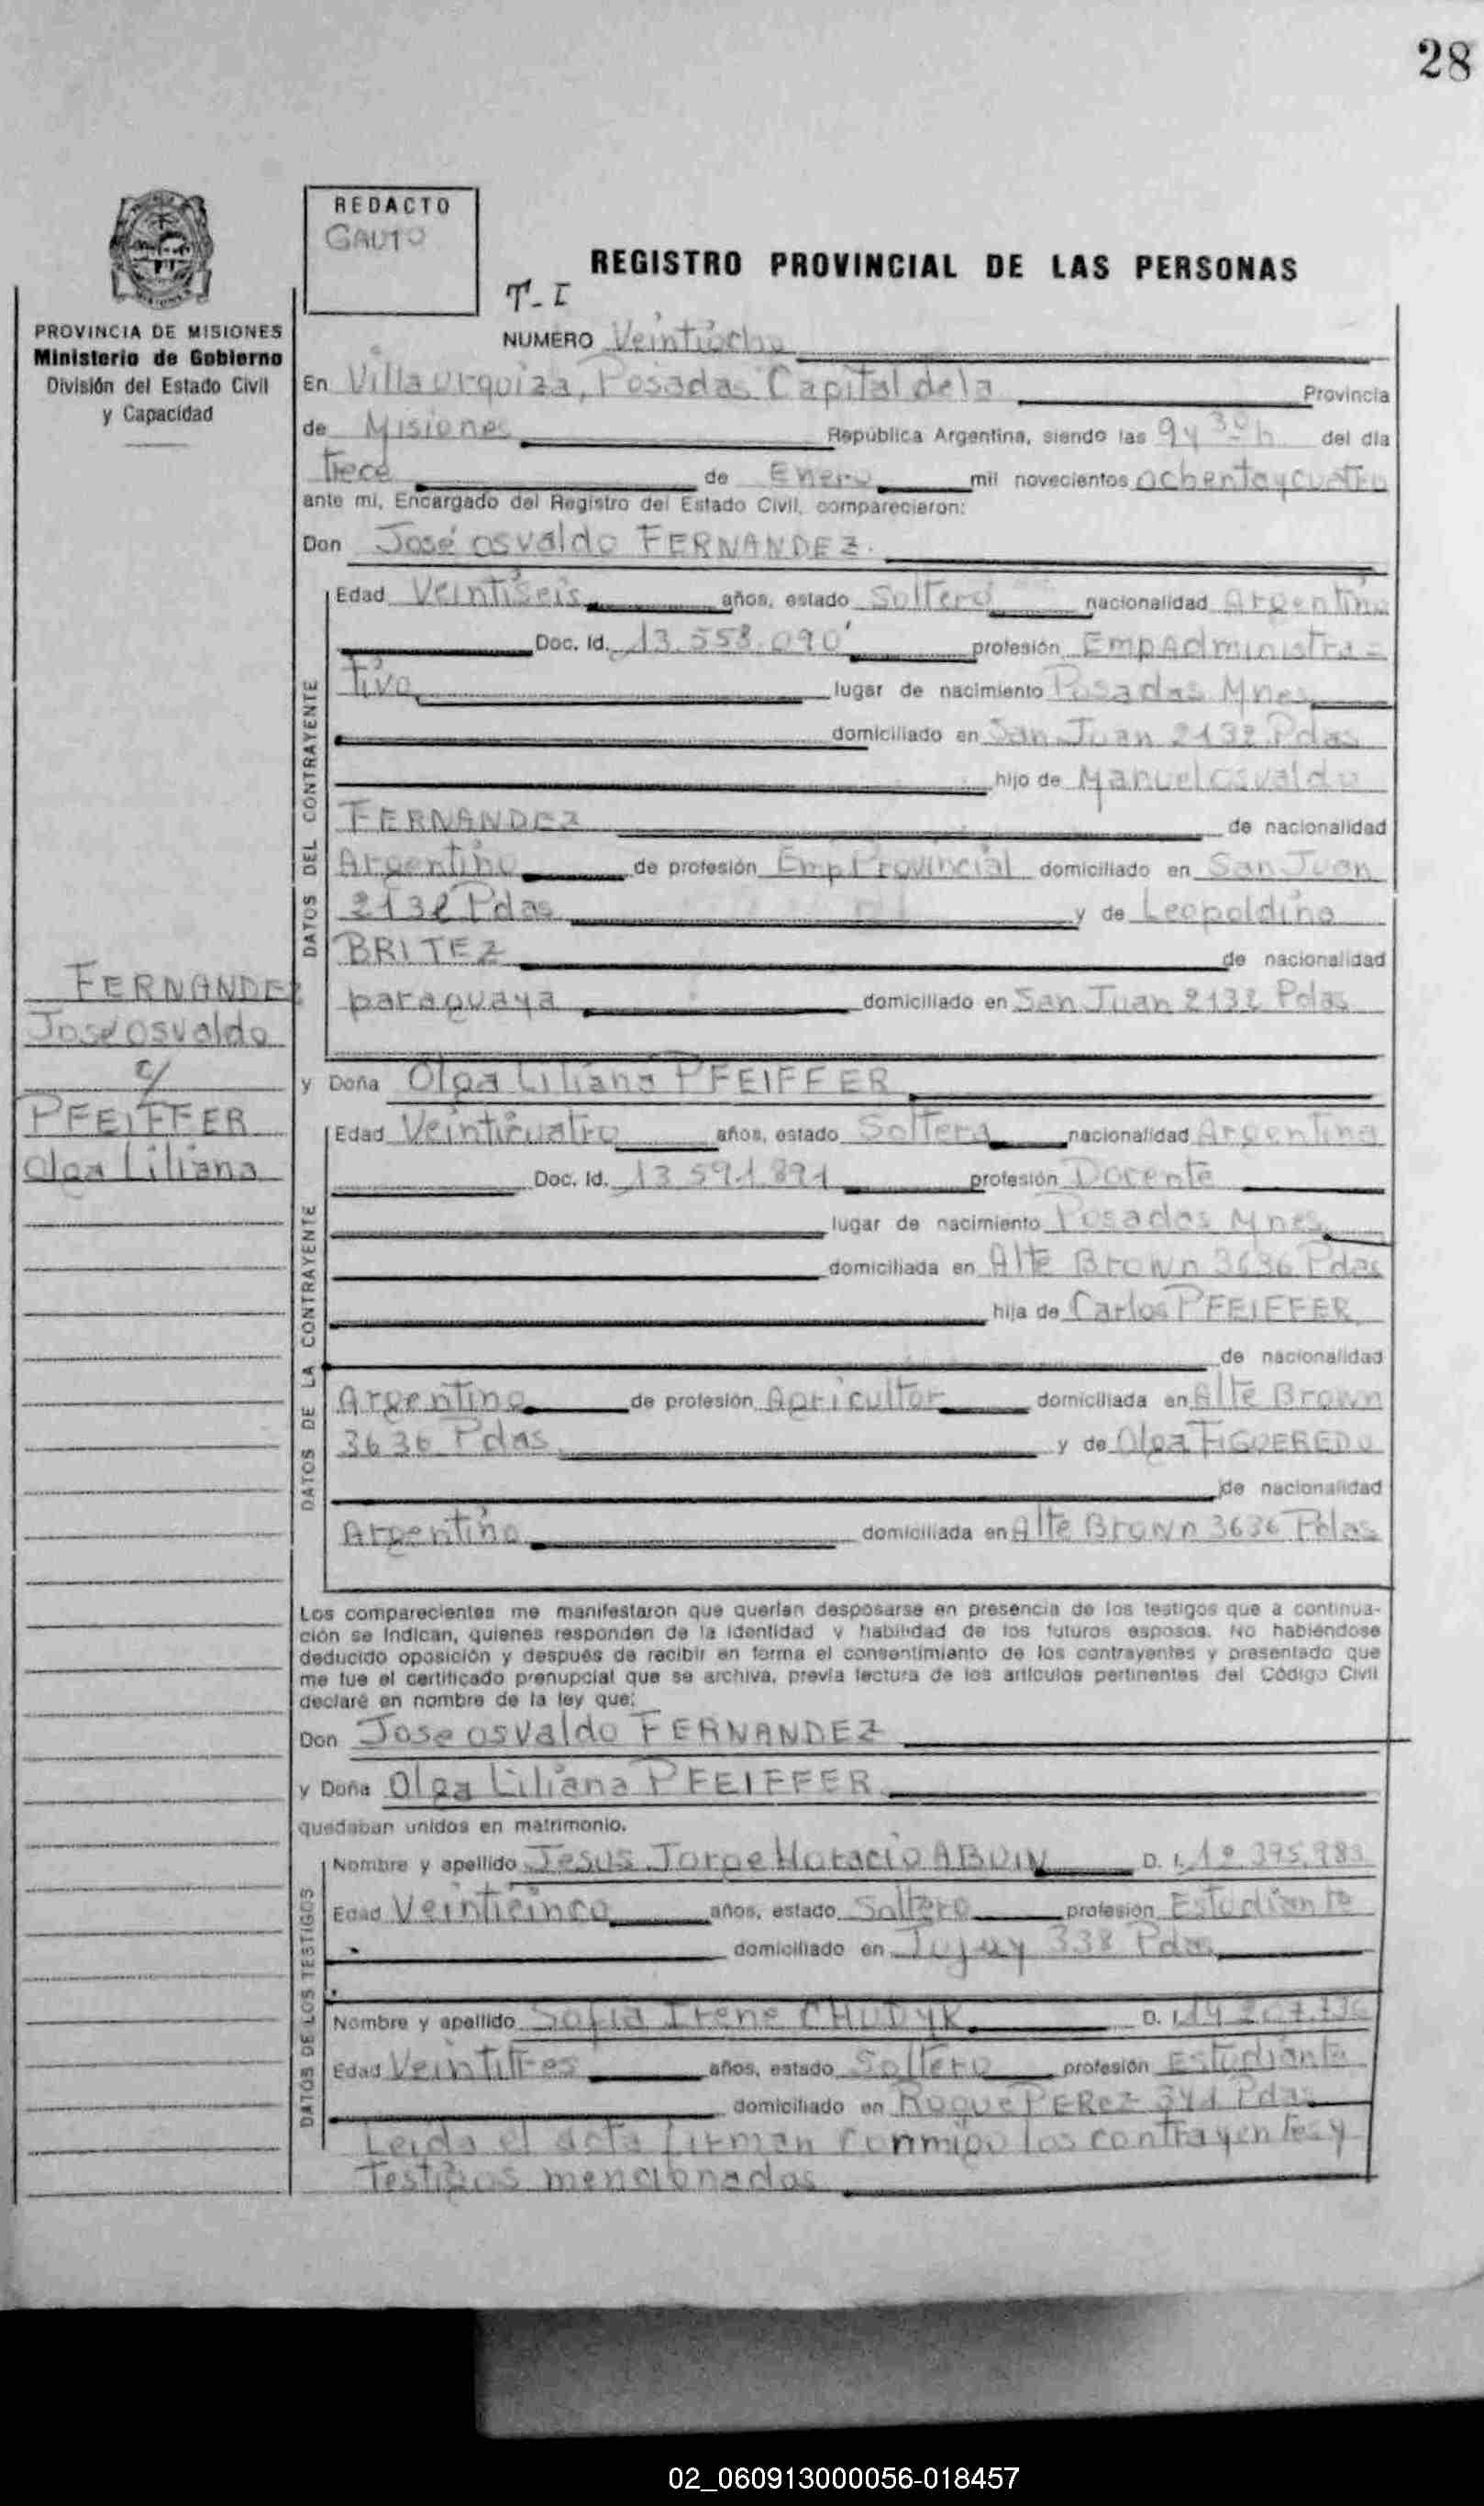 28
REDACTO
GAUTO
REGISTRO PROVINCIAL DE LAS PERSONAS
T-I
PROVINCIA DE MISIONES
Ministerio de Gobierno
División del Estado Civil
y Capacidad
NUMERO Veintiocho
En Villa Urquiza, Posadas Capital de la Provincia
de Misiones República Argentina, siendo las 9 y 30 h del día
trece de Enero mil novecientos ochenta y cuatro
ante mí, Encargado del Registro del Estado Civil, comparecieron:
Don José Osvaldo FERNANDEZ.
DATOS DEL CONTRAYENTE
Edad Veintiseis años, estado Soltero nacionalidad Argentino
Doc. Id. 13.558.090 profesión Emp Administra-
tivo lugar de nacimiento Posadas Mnes
domiciliado en San Juan 2132 Pdas
hijo de Manuel Osvaldo
FERNANDEZ de nacionalidad
Argentino de profesión Emp Provincial domiciliado en San Juan
2132 Pdas y de Leopoldina
BRITEZ de nacionalidad
paraguaya domiciliado en San Juan 2132 Pdas
FERNANDEZ
José Osvaldo
c/
PFEIFFER
Olga Liliana
y Doña Olga Liliana PFEIFFER
DATOS DE LA CONTRAYENTE
Edad Veinticuatro años, estado Soltera nacionalidad Argentina
Doc. Id. 13 591 891 profesión Docente
lugar de nacimiento Posadas Mnes
domiciliada en Alte Brown 3636 Pdas
hija de Carlos PFEIFFER
de nacionalidad
Argentino de profesión Agricultor domiciliada en Alte Brown
3636 Pdas y de Olga FIGUEREDO
de nacionalidad
Argentina domiciliada en Alte Brown 3636 Pdas
Los comparecientes me manifestaron que querían desposarse en presencia de los testigos que a continua-
ción se indican, quienes responden de la identidad y habilidad de los futuros esposos. No habiéndose
deducido oposición y después de recibir en forma el consentimiento de los contrayentes y presentado que
me fue el certificado prenupcial que se archiva, previa lectura de los artículos pertinentes del Código Civil
declaré en nombre de la ley que:
Don Jose Osvaldo FERNANDEZ
y Doña Olga Liliana PFEIFFER
quedaban unidos en matrimonio.
DATOS DE LOS TESTIGOS
Nombre y apellido Jesus Jorge Horacio ABUIN D. I.
Edad Veinticinco años, estado Soltero profesión Estudiante
domiciliado en Jujuy 338 Pdas
Nombre y apellido Sofia Irene CHUDYK D. I. 14 207.736
Edad Veintitres años, estado Soltero profesión Estudiante
domiciliado en Roque PEREZ 341 Pdas
Leida el acta firman conmigo los contrayentes y
testigos mencionados
02_060913000056-018457